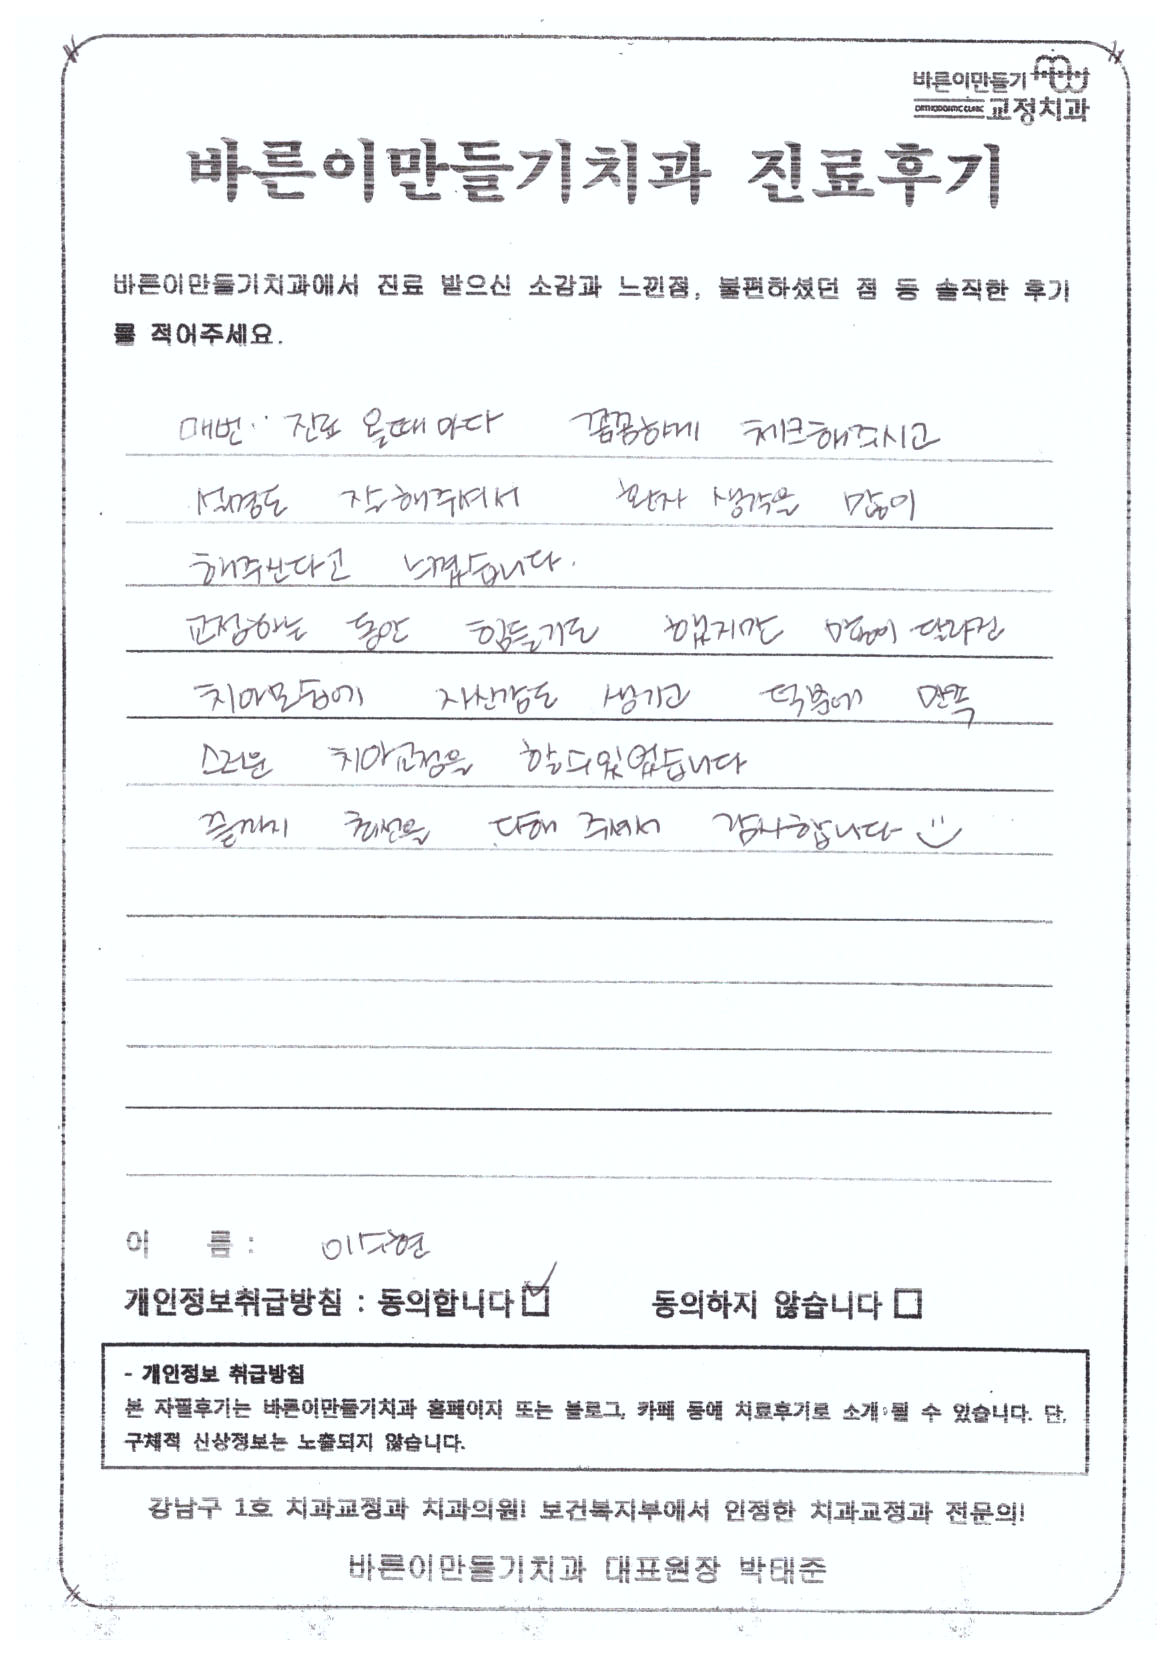 바른이만들기
ORTHODONTIC CLINIC 교정치과
바른이만들기치과 진료후기
바른이만들기치과에서 진료 받으신 소감과 느낀점, 불편하셨던 점 등 솔직한 후기
를 적어주세요.
매번 진료 올때마다 꼼꼼하게 체크해주시고
설명도 잘해주셔서 환자 생각을 많이
해주신다고 느꼈습니다.
교정하는 동안 힘들기도 했지만 많이 달라진
치아모습에 자신감도 생기고 덕분에 만족
스러운 치아교정을 할수있었습니다
끝까지 최선을 다해 주셔서 감사합니다
이 름 : 이수현
개인정보취급방침 : 동의합니다 동의하지 않습니다
- 개인정보 취급방침
본 자필후기는 바른이만들기치과 홈페이지 또는 블로그, 카페 등에 치료후기로 소개 될 수 있습니다. 단,
구체적 신상정보는 노출되지 않습니다.
강남구 1호 치과교정과 치과의원! 보건복지부에서 인정한 치과교정과 전문의!
바른이만들기치과 대표원장 박태준